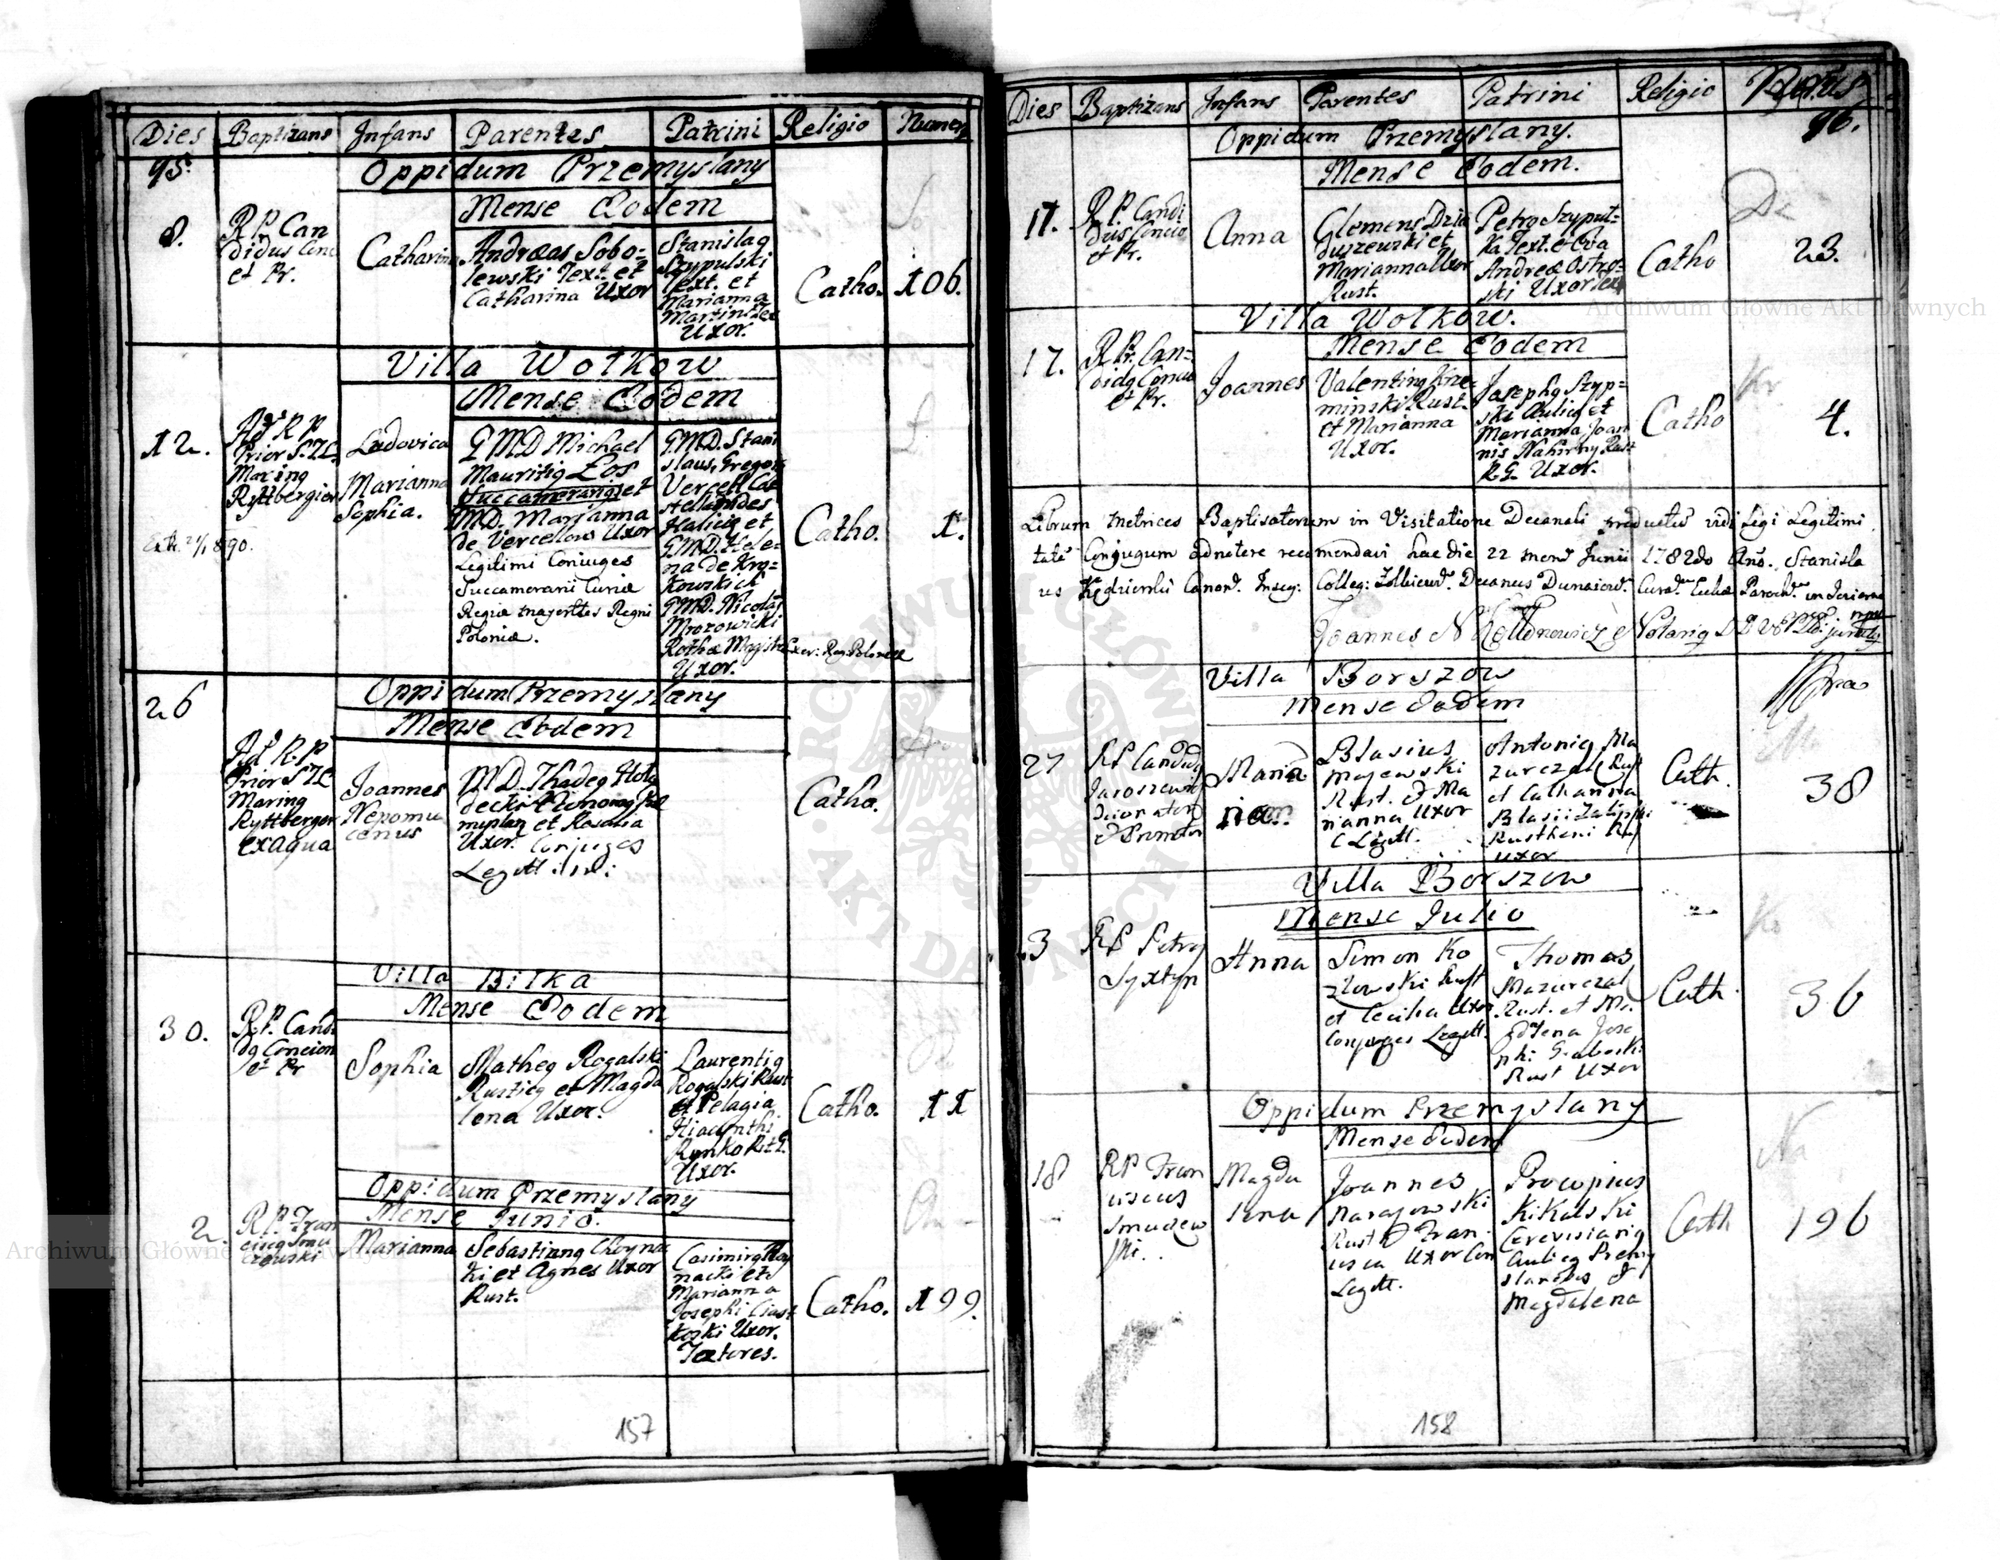 Dies Baptizans Infans Parentes Patrini Religio Numer
95.
Oppidum Przemyslany
Mense Eodem
8.
R. P. Can
didus Conc
et Pr.
Catharina
Andreas Sobo-
lewski Text. et
Catharina Uxor
Stanislaq
Szypulski
Text. et
Marianna
Martini
Uxor.
Catho.
106.
Villa Wolkow
Mense Eodem
12.
Ad R P
Prior S. T. L.
Maring
Ryttbergier
Ludovica
Marianna
Sophia.
G M D Michael
Mauritiq Łos
Succamerariq et
M D. Marianna
de Vercellow Uxor
Legitimi Coniuges
Succamerarii Curiæ
Regiæ majestites Regni
Poloniæ.
G. M D. Stani
slaus, Gregor
Vercell Cas
tellanides
Halicię et
G M D. Hele-
na de Kro-
kowskich
G M D. Nicolai
Mrozowicki
Rothæ Magistr Exer: Reg. Poloniæ
Uxor.
Catho.
1.
26
Oppidum Przemyslany
Mense Eodem
Ad R. P
Prior S. T. L
Maring
Ryttberger
ex aqua
Joannes
Nepomu
cenus
M D. Thadeq Holo
decki
et Rosalia
Uxor. Conjuges
Legittimi
Catho.
Villa Bilka
Mense Eodem
30.
R. P. Candi
dq Concion
et Pr
Sophia
Matheq Rogalski
Rusticq et Magda
lena Uxor.
Laurentiq
Rogalski Rust
et Pelagia
Hiacynthi
Rynko R. t. G.
Uxor.
Catho.
11
Oppidum Przemyslany
Mense Junio.
2.
R. P. Fran
ciscq Smu
czewski
Marianna
Sebastianq Choynac
ki et Agnes Uxor
Rust.
Casimirq Choy
nacki et
Marianna
Josephi Ciast
koski Uxor.
Textores.
Catho.
199.
157
Dies Baptizans Infans Parentes Patrini Religio Nrus
96.
Oppidum Przemyslany.
Mense Eodem.
17.
R. P. Candi
dus Concio
et Pr.
Anna
Clemens Dzia
duszewski et
Marianna Uxor
Rust.
Petro Szypul-
ka Text. et Eva
Andreæ Ostro-
ski Uxor Text
Catho
23.
Villa Wolkow.
Mense Eodem
17.
R. Pr. Can=
didq Concio
et Pr.
Joannes
Valentinq Krze-
minski Rust.
et Marianna
Uxor.
Josephq Szyp=
ski Aulicq et
Marianna Joan
nis Nahirny Rust
R. G. Uxor.
Catho
4.
Librum metrices Baptisatorum in Visitatione Decanali productũ vidi Legi Legitimi
tatẽ Conjugum adnotere recomendavi hac die 22 mens Junii 1782do Ano. Stanisla
us Canon. Colleg: Decanus Dunaiow.
Joannes Notariq
Villa Borszow
Mense Eodem
27
R P Candidq
Jaroszewic
et Promotor
Maria
nna.
Blasius
Majewski
Rust. et Ma
rianna Uxor
C Legitt.
Antoniq Ma
zurczak Rust
et Catharina
Blasii
Rutheni Rus
Uxor
Cath.
38
Villa Borszow
Mense Julio
3
R P Petrq
Syxtyn
Anna
Simon Ko
zlowski Rust
et Cecilia Uxor
Conjuges Legitt.
Thomas
Mazurczak
Rust. et Ma
gdalena Jose
phi Graboski
Rust Uxor
Cath.
36
Oppidum Przemyslany
Mense Eodem
18
R P Fran
ciscus
Smuczew
ski.
Magda
lena
Joannes
Narajowski
Rust. et Fran
cisca Uxor Con
Legitt.
Procopius
Kikalski
Cerevisiariq
Aulicq Premy
slanensis et
Magdalena
Cath
196
158
Archiwum Główne Akt Dawnych
Archiwum Główne Akt Dawnych
ARCHIWUM GŁÓWNE
AKT DAWNYCH